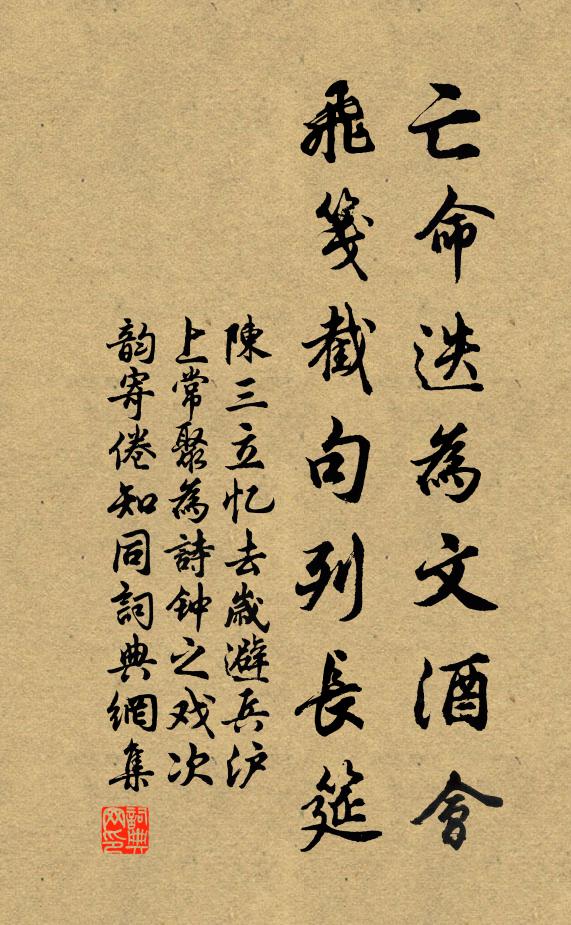 亡命迭為文酒會
飛箋截句列長筵
陳三立忆去嵗避兵沪
上常聚為詩钟之戏次
韵寄倦知同詞典網集
詞典网印